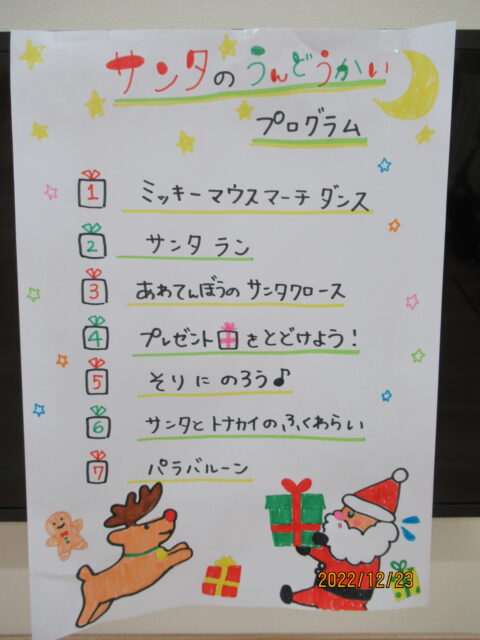 サンタのうんどうかい
プログラム
1 ミッキーマウスマーチ ダンス
2 サンタ ラン
3 あわてんぼうの サンタクロース
4 プレゼントをとどけよう!
5 そりに のろう♪
6 サンタと トナカイの ふくわらい
7 パラバルーン
2022/12/23